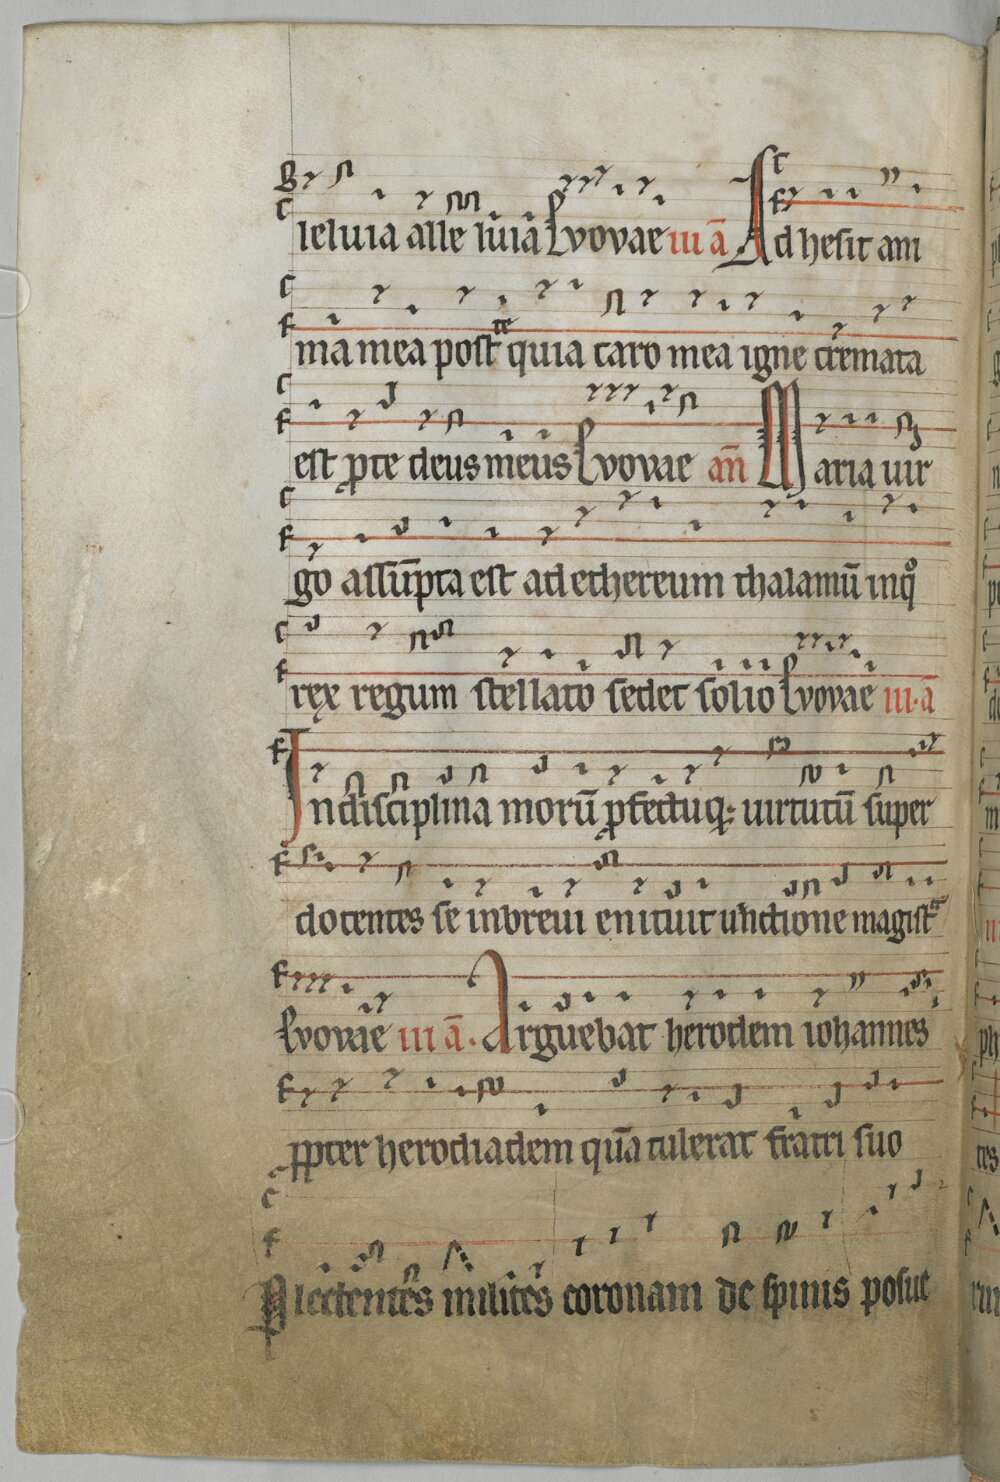 leluia alle luia Evovae iii a Adhesit am
ma mea post te quia caro mea igne cremata
est pte deus meus Evovae an Maria uir
go assūpta est ad ethereum thalamū in qͦ
rex regum stellato sedet solio Evovae iii · a
In disciplina morū pfectuq; uirtutū super
docentes se in breui enituit unctione magistͣ
Evovae iii a · Arguebat herodem iohannes
ppter herodiadem quā tulerat fratri suo
Plectentes milites coronam de spinis posue